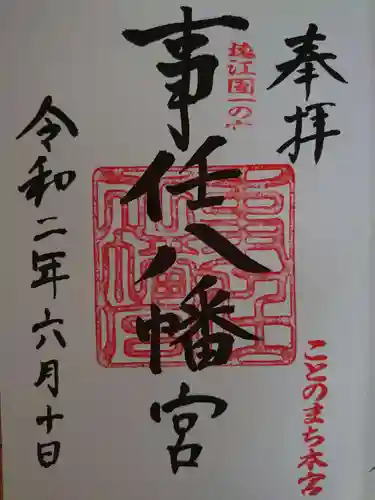 奉拝
遠江国一の宮
事任八幡宮
ことのまち本宮
令和二年六月十日